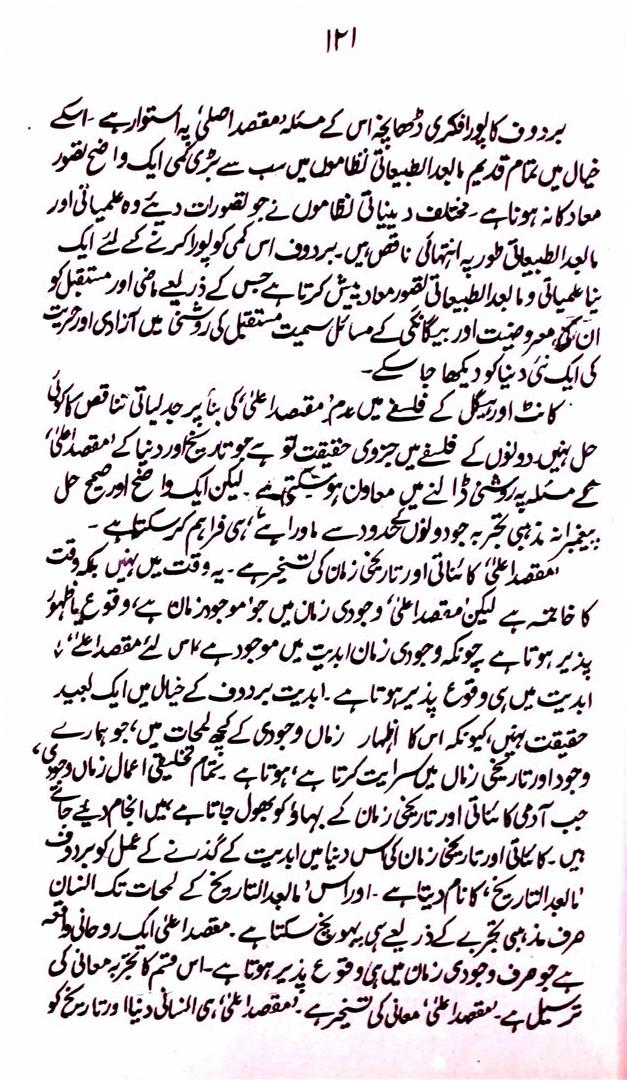 ۱۲۱
بردوف کا پورا فکری ڈھانچہ اس کے مسئلہ ’مقصد اصلی‘ پہ استوار ہے ۔ اسکے
خیال میں تمام قدیم مابعد الطبیعاتی نظاموں میں سب سے بڑی کمی ایک واضح تصور
معاد کا نہ ہونا ہے ۔ مختلف دینیاتی نظاموں نے جو تصورات دیئے وہ علمیاتی اور
مابعد الطبیعاتی طور پہ انتہائی ناقص ہیں ۔ بردوف اس کمی کو پورا کرنے کے لئے ایک
نیا علمیاتی و مابعد الطبیعاتی تصور معاد پیش کرتا ہے جس کے ذریعے ماضی اور مستقبل کو
ان کی معروضیت اور بیگانگی کے مسائل سمیت مستقبل کی روشنی میں آزادی اور حریت
کی ایک نئی دنیا کو دیکھا جا سکے ۔
کانٹ اور ہیگل کے فلسفے میں عدم ’مقصد اعلیٰ‘ کی بنا پر جدلیاتی تناقض کا کوئی
حل نہیں ۔ دونوں کے فلسفے میں جزوی حقیقت تو ہے جو تاریخ اور دنیا کے ’مقصد اعلیٰ‘
کے مسئلہ پہ روشنی ڈالنے میں معاون ہو سکتی ہے ۔ لیکن ایک واضح اور صحیح حل
پیغمبرانہ مذہبی تجربہ جو دونوں کی حدود سے ماورا ہے ، ہی فراہم کر سکتا ہے ۔
’مقصد اعلیٰ‘ کائناتی اور تاریخی زمان کی تسخیر ہے ۔ یہ وقت میں نہیں بلکہ وقت
کا خاتمہ ہے لیکن ’مقصد اعلیٰ‘ وجودی زماں میں جو ’موجود زمان ہے‘ وقوع یا ظہور
پذیر ہوتا ہے چونکہ وجودی زمان ابدیت میں موجود ہے اس لئے ’مقصد اعلیٰ‘
ابدیت میں ہی وقوع پذیر ہوتا ہے ۔ ابدیت بردوف کے خیال میں ایک بعید
حقیقت نہیں ، کیونکہ اس کا اظہار زماں وجودی کے کچھ لمحات میں ، جو ہمارے
وجود اور تاریخی زماں میں سرایت کرتا ہے ، ہوتا ہے ۔ تمام تخلیقی اعمال زماں وجودی ،
جب آدمی کائناتی اور تاریخی زمان کے بہاؤ کو بھول جاتا ہے میں انجام دیئے جاتے
ہیں ۔ کائناتی اور تاریخی زمان کی اس دنیا میں ابدیت کے گذرنے کے عمل کو بردوف
’مابعد التاریخ‘ کا نام دیتا ہے ۔ اور اس ’مابعد التاریخ‘ کے لمحات تک انسان
صرف مذہبی تجربے کے ذریعے ہی پہونچ سکتا ہے ۔ مقصد اعلیٰ ایک روحانی واقعہ
ہے جو صرف وجودی زمان میں ہی وقوع پذیر ہوتا ہے ۔ اس قسم کا تجربہ معانی کی
ترسیل ہے ۔ ’مقصد اعلیٰ‘ معانی کی تسخیر ہے ۔ ’مقصد اعلیٰ‘ ہی انسانی دنیا اور تاریخ کو